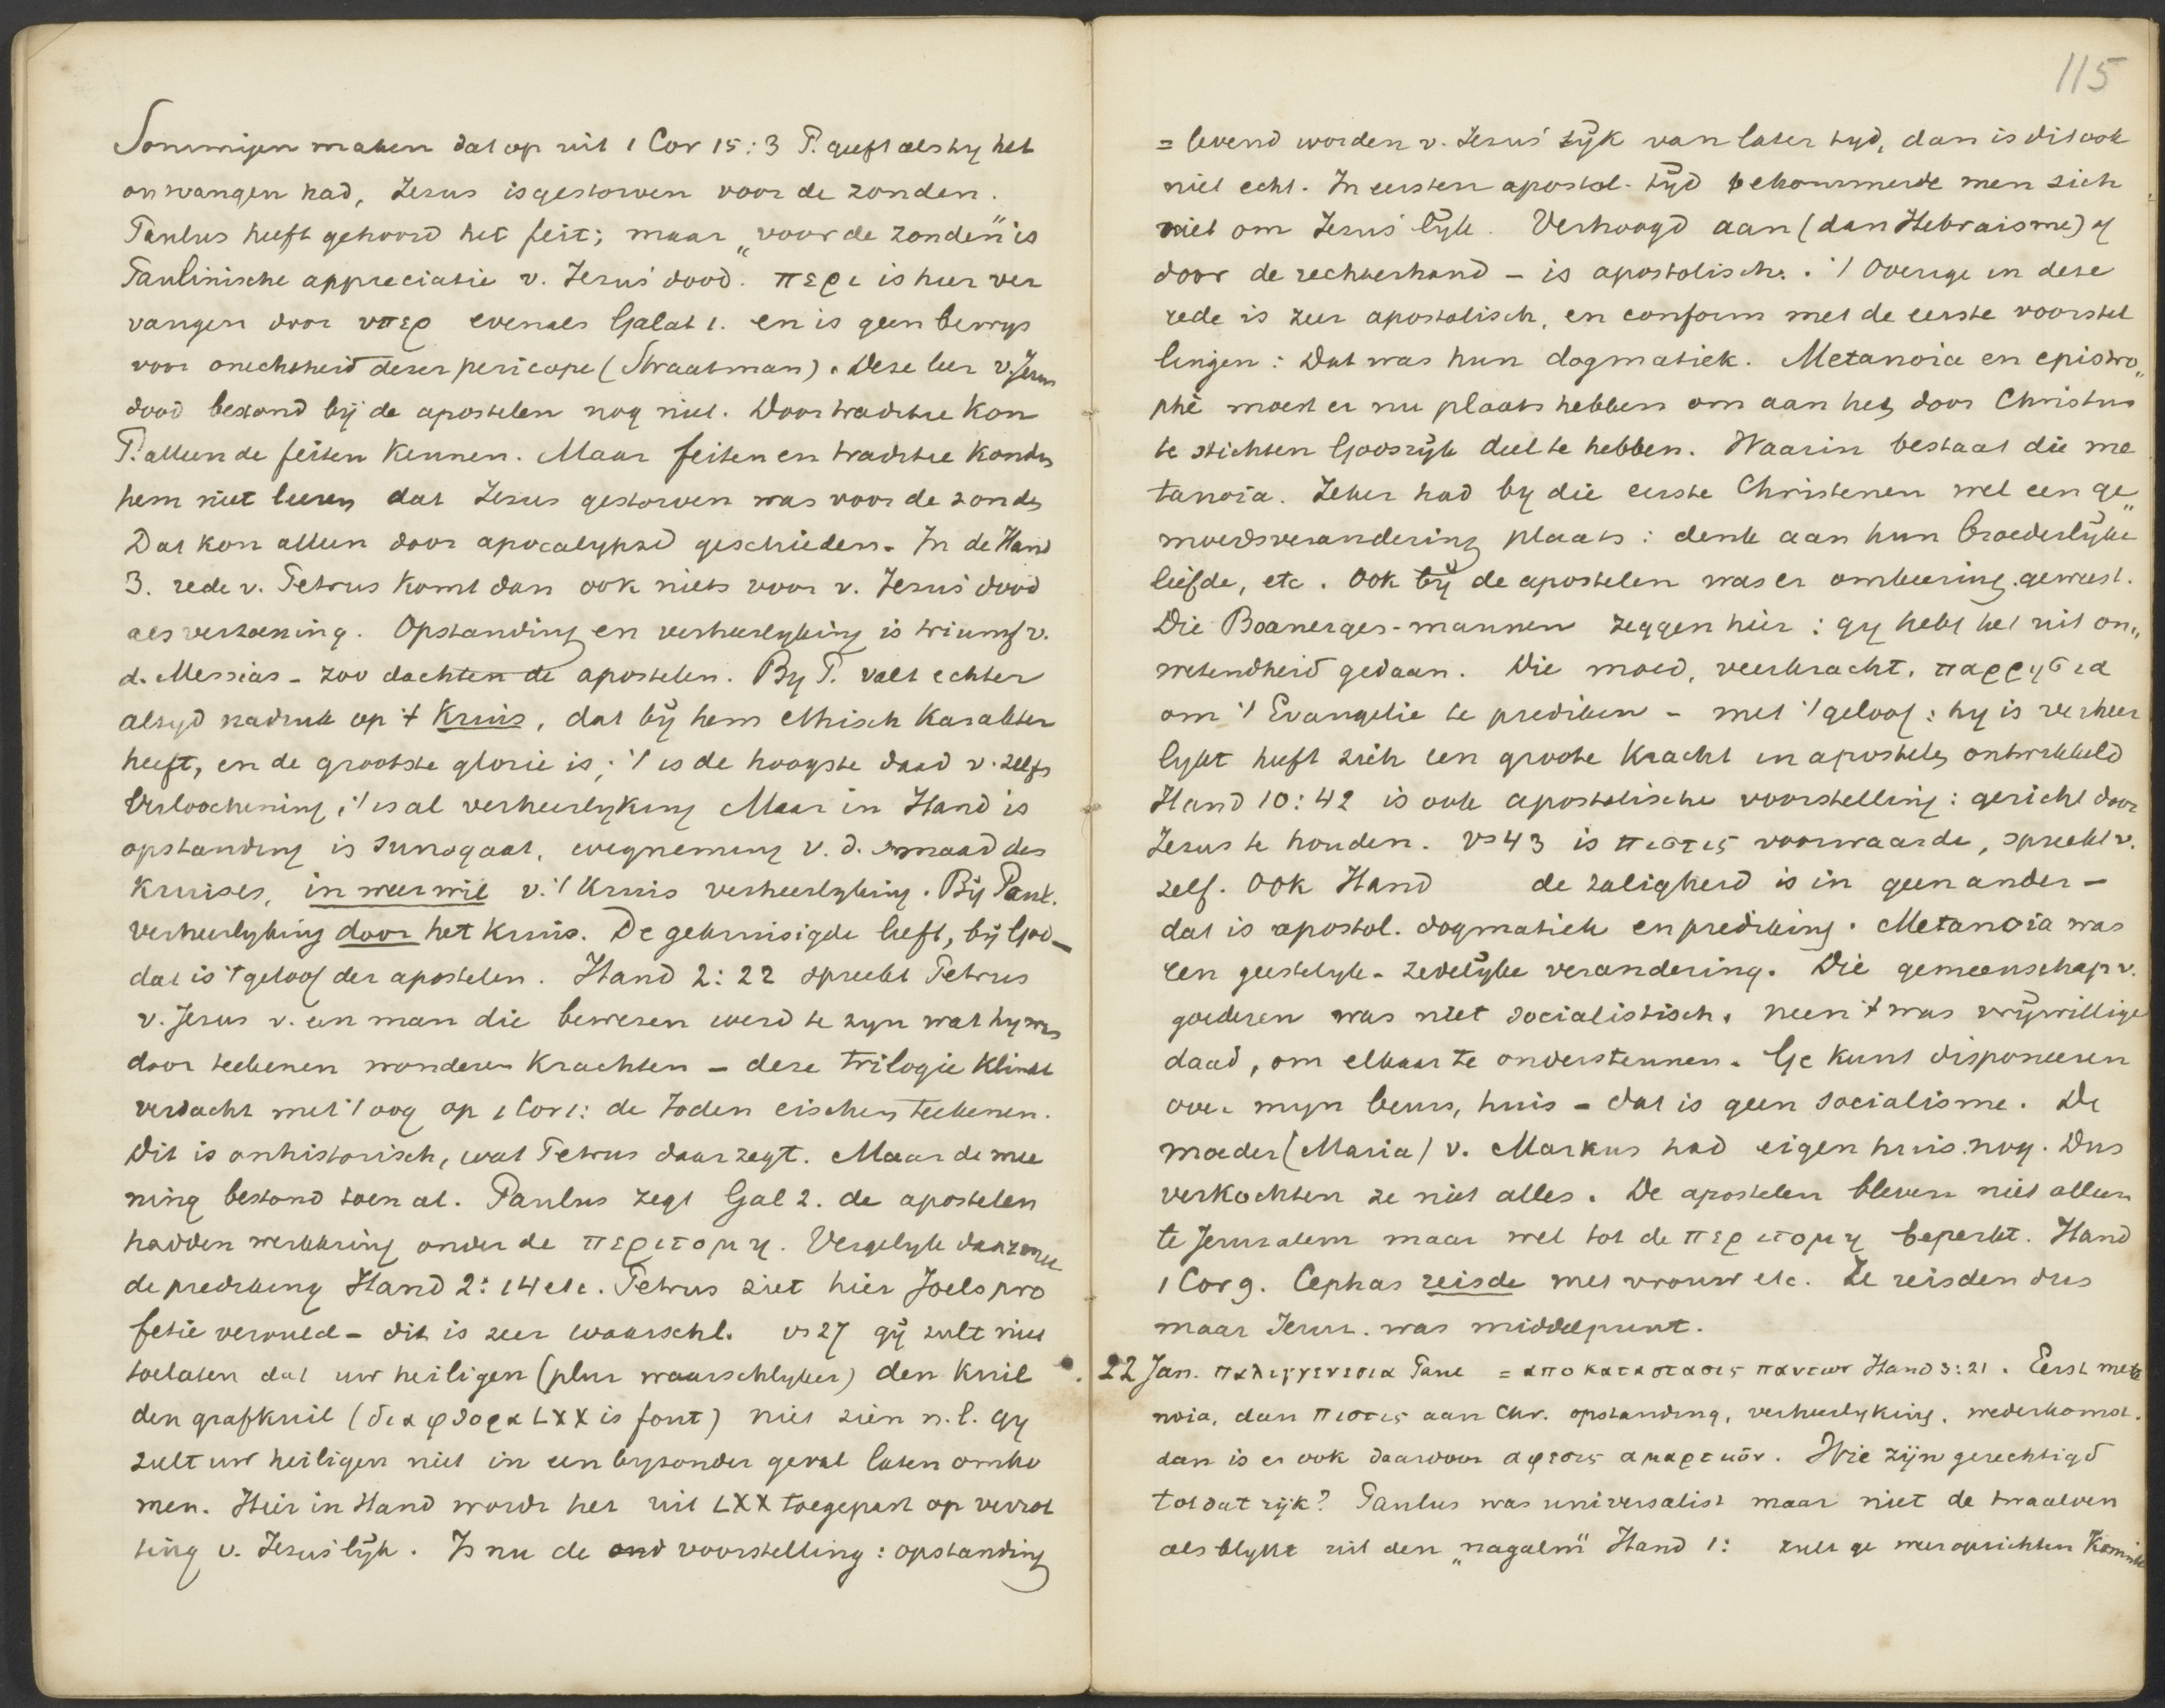 Sommigen maken dat op uit 1 Cor 15:3 P. geeft als hy het
onvangen had, Jezus is gestorven voor de zonden.
Paulus heeft gehoord het feit; maar „voor de zonden" is
Paulinische appreciatie v. Jezus' dood. περι is hier ver
vangen door υπερ evenals Galat 1. en is geen bewys
voor onechtheid dezer pericope (Straatman). Deze leer v. Jezus
dood bestond bij de apostelen nog niet. Door traditie kon
P. alleen de feiten kennen. Maar feiten en traditie konden
hem niet leeren dat Jezus gestorven was voor de zonden
Dat kon alleen door apocalypsis geschieden. In de Hand
3. rede v. Petrus komt dan ook niets voor v. Jezus' dood
als verzoening. Opstanding en verheerlyking is triumf v.
d. Messias - zoo dachten de apostelen. By P. valt echter
altyd nadruk op 't Kruis, dat bij hem ethisch karakter
heeft, en de grootste glorie is; 't is de hoogste daad v. zelfs
verloochening, 't is al verheerlyking Maar in Hand is
opstanding is surrogaat, wegneming v. d. smaad des
kruises, in weerwil v. 't kruis verheerlyking. Bij Paul.
verheerlyking door het kruis. De gekruisigde leeft, bij God_
dat is 't geloof der apostelen. Hand 2:22 spreekt Petrus
v. Jezus v. een man die bewezen werd te zyn wat hy was
door teekenen wonderen krachten - deze trilogie klinkt
verdacht met 't oog op 1 Cor 1: de Joden eischen teekenen.
Dit is onhistorisch, wat Petrus daar zegt. Maar de mee
ning bestond toen al. Paulus zegt Gal 2. de apostelen
hadden werkkring onder de περιτομη. Vergelyk daarmee
de prediking Hand 2:14 etc. Petrus ziet hier Joels pro
fetie vervuld - dit is zeer waarschl. vs 27 gij zult niet
toelaten dat uw heiligen (plur waarschlyker) den kuil
den grafkuil (διαφθορα LXX is fout) niet zien n.l. gy
zult uw heiligen niet in een byzonder geval laten omko
men. Hier in Hand wordt het uit LXX toegepast op verrot
ting v. Jezus' lijk. Is nu de oud voorstelling: opstanding
115
= levend worden v. Jezus' lijk van later tyd, dan is dit ook
niet echt. In eersten apostol. tijd bekommerde men zich
niet om Jezus' lijk. Verhoogd aan (dan Hebraisme) of
door de rechterhand - is apostolisch. 't Overige in deze
rede is zeer apostolisch, en conform met de eerste voorstel
lingen: Dat was hun dogmatiek. Metanoia en epistro„
phè moest er nu plaats hebben om aan het door Christus
te stichten Godsrijk deel te hebben. Waarin bestaat die me
tanoia. Zeker had by die eerste Christenen wel een ge„
moedsverandering plaats: denk aan hun broederlijke
liefde, etc. Ook bij de apostelen was er omkeering geweest.
Die Boanerges-mannen zeggen hier: gy hebt het uit on„
wetendheid gedaan. Die moed, veerkracht, παρρησια
om 't Evangelie te prediken - met 't geloof: hy is verheer
lykt heeft zich een groote kracht in apostelen ontwikkeld
Hand 10:42 is ook apostolische voorstelling: gericht door
Jezus te houden. vs 43 is πιστις voorwaarde, spreekt v.
zelf. Ook Hand de zaligheid is in geen ander -
dat is apostol. dogmatiek en prediking. Metanoia was
een geestelyk-zedelijke verandering. Die gemeenschap v.
goederen was niet socialistisch. neen 't was vrijwillige
daad, om elkaar te ondersteunen. Ge kunt disponeeren
over myn beurs, huis - dat is geen socialisme. De
moeder (Maria) v. Markus had eigen huis nog. Dus
verkochten ze niet alles. De apostelen bleven niet alleen
te Jeruzalem maar wel tot de περιτομη beperkt. Hand
1 Cor 9. Cephas reisde met vrouw etc. Ze reisden dus
maar Jeruz. was middelpunt.
22 Jan. παλιγγενεσια Paul = αποκαταστασις παντων Hand 3:21. Eerst meta
noia, dan πιστις aan Chr. opstanding, verheerlyking, wederkomst.
dan is er ook daardoor αφεσις αμαρτιων. Wie zijn gerechtigd
tot dat rijk? Paulus was universalist maar niet de twaalven
als blykt uit den „nagalm" Hand 1: zult ge weer oprichten Konink